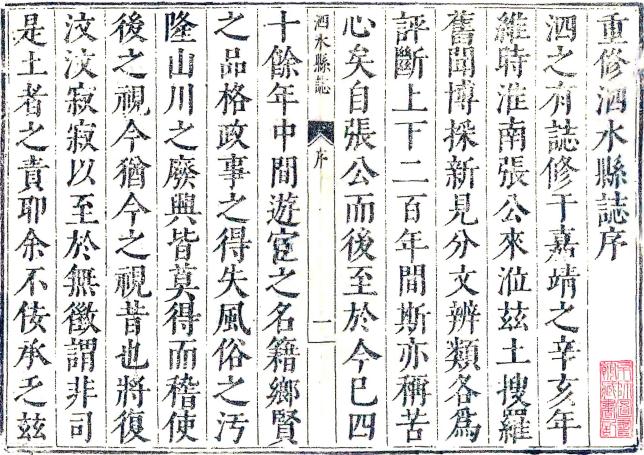 重修泗水縣誌序
泗之有誌修于嘉靖之辛亥年
維時淮南張公來涖茲土搜羅
舊聞博採新見分文辨類各爲
評斷上下二百年間斯亦稱苦
心矣自張公而後至於今已四
泗水縣誌 序 一
十餘年中間遊宦之名籍鄉賢
之品格政事之得失風俗之汚
隆山川之廢興皆莫得而稽使
後之視今猶今之視昔也將復
汶汶寂寂以至於無徵謂非司
是土者之責耶余不佞承乏茲